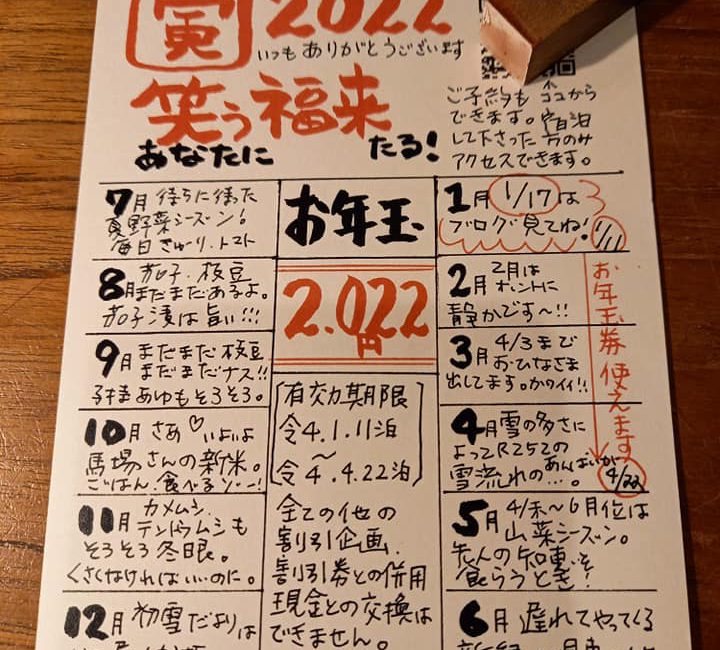 寅 2022
いつもありがとうございます
笑う福来
あなたに たる!
ご予約も ココから
できます。宿泊
して下さった方のみ
アクセスできます。
7月 待ちに待った
夏野菜シーズン!
毎日きゅーり、トマト
8月 茄子、枝豆
まだまだあるよ。
茄子漬は旨い!!!
9月 まだまだ枝豆
まだまだナス!!
子持あゆもそろそろ。
10月 さあ♡いよいよ
馬場さんの新米。
ごはん、食べるゾー!
11月 カメムシ、
テンドウムシも
そろそろ冬眠。
くさくなければいいのに。
12月 初雪だよりは
お年玉
2.022
円
[有効期限
令4.1.11泊
〜
令4.4.22泊]
全ての他の
割引企画、
割引券との併用
現金との交換は
できません。
1月 1/17は
ブログ見てね! 1/11
2月 2月は
ホントに
静かです〜!!
3月 4/3まで
おひなさま
出してます。かワイイ!!
4月 雪の多さに
よってR252の
雪流れのあんばいが…。
5月 4/末〜6月位は
山菜シーズン。
先人の知恵を
食らうとき!
6月 遅れてやってくる
お年玉券使えます
4/22